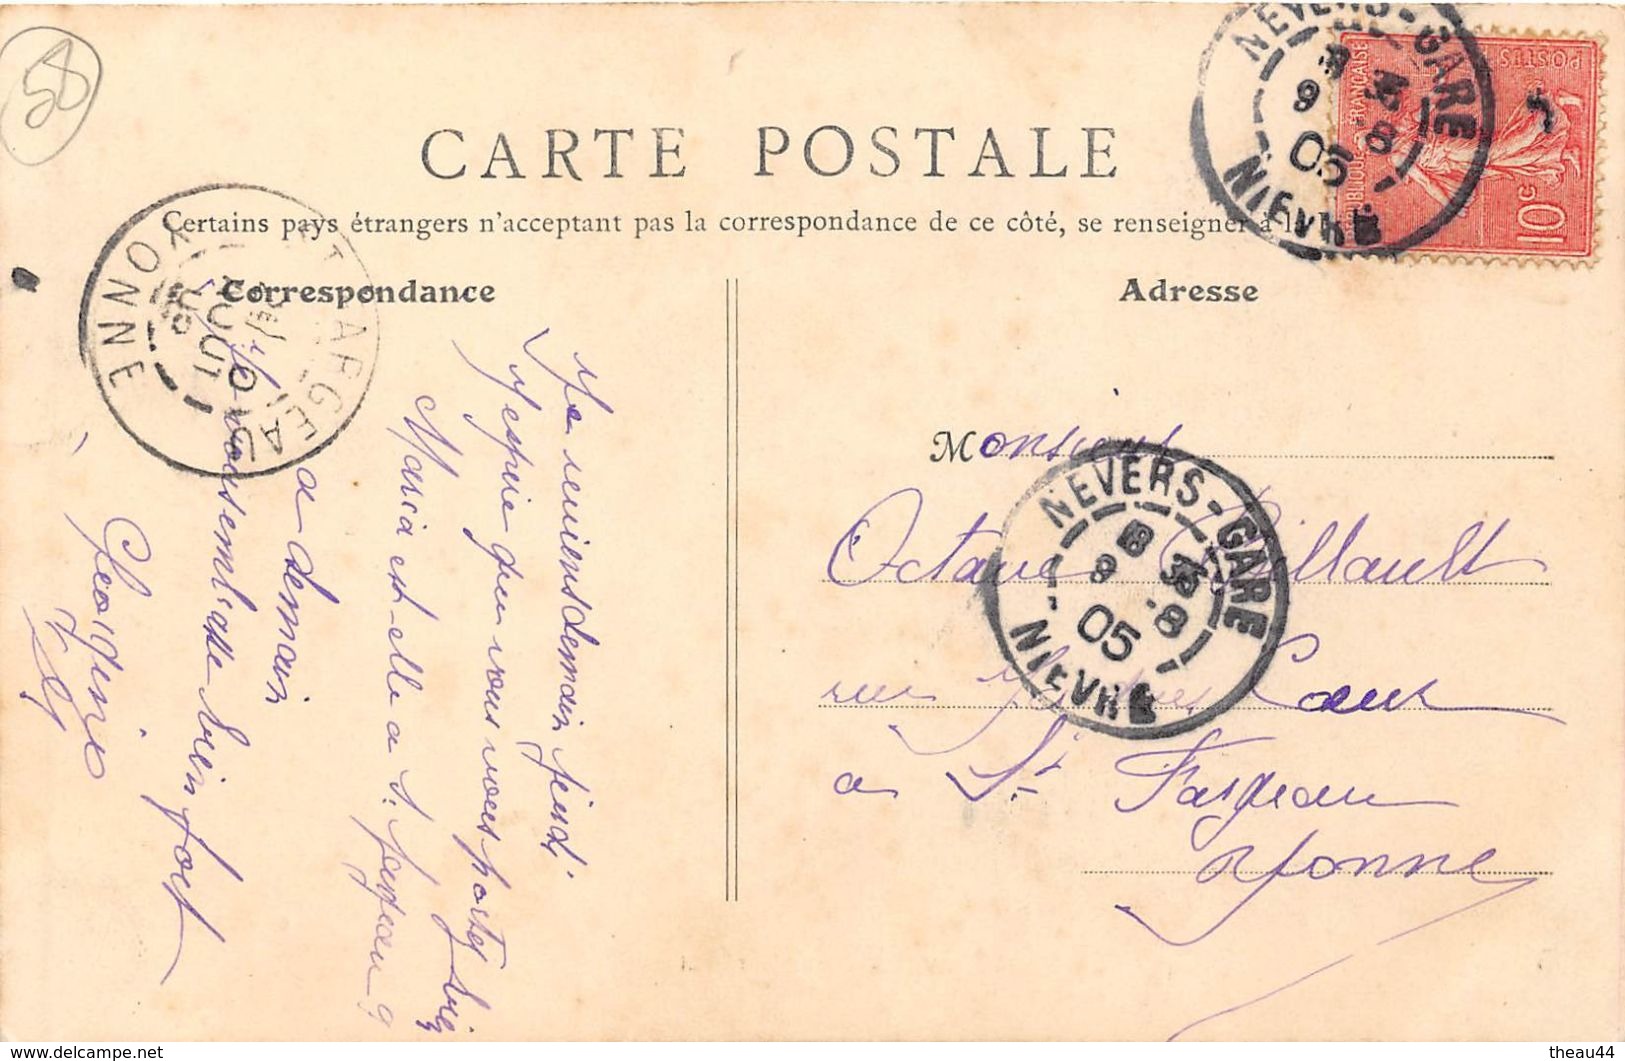 58
CARTE POSTALE
Certains pays étrangers n'acceptant pas la correspondance de ce côté, se renseigner à la
Correspondance
Adresse
Je reviens demain jeudi
J'espère que vous vous portez bien
Maria est elle a St. fargeau ?
Je vous embrasse bien fort
a demain
Georgine
Monsieur
Octave
rue Cœur
a St Fargeau
Yonne
NEVERS-GARE
9 8
05
NIEVRE
NEVERS-GARE
9 8
05
NIEVRE
ST FARGEAU
10 AOUT
05
YONNE
RÉPUBLIQUE FRANÇAISE
POSTES
10c
theau44